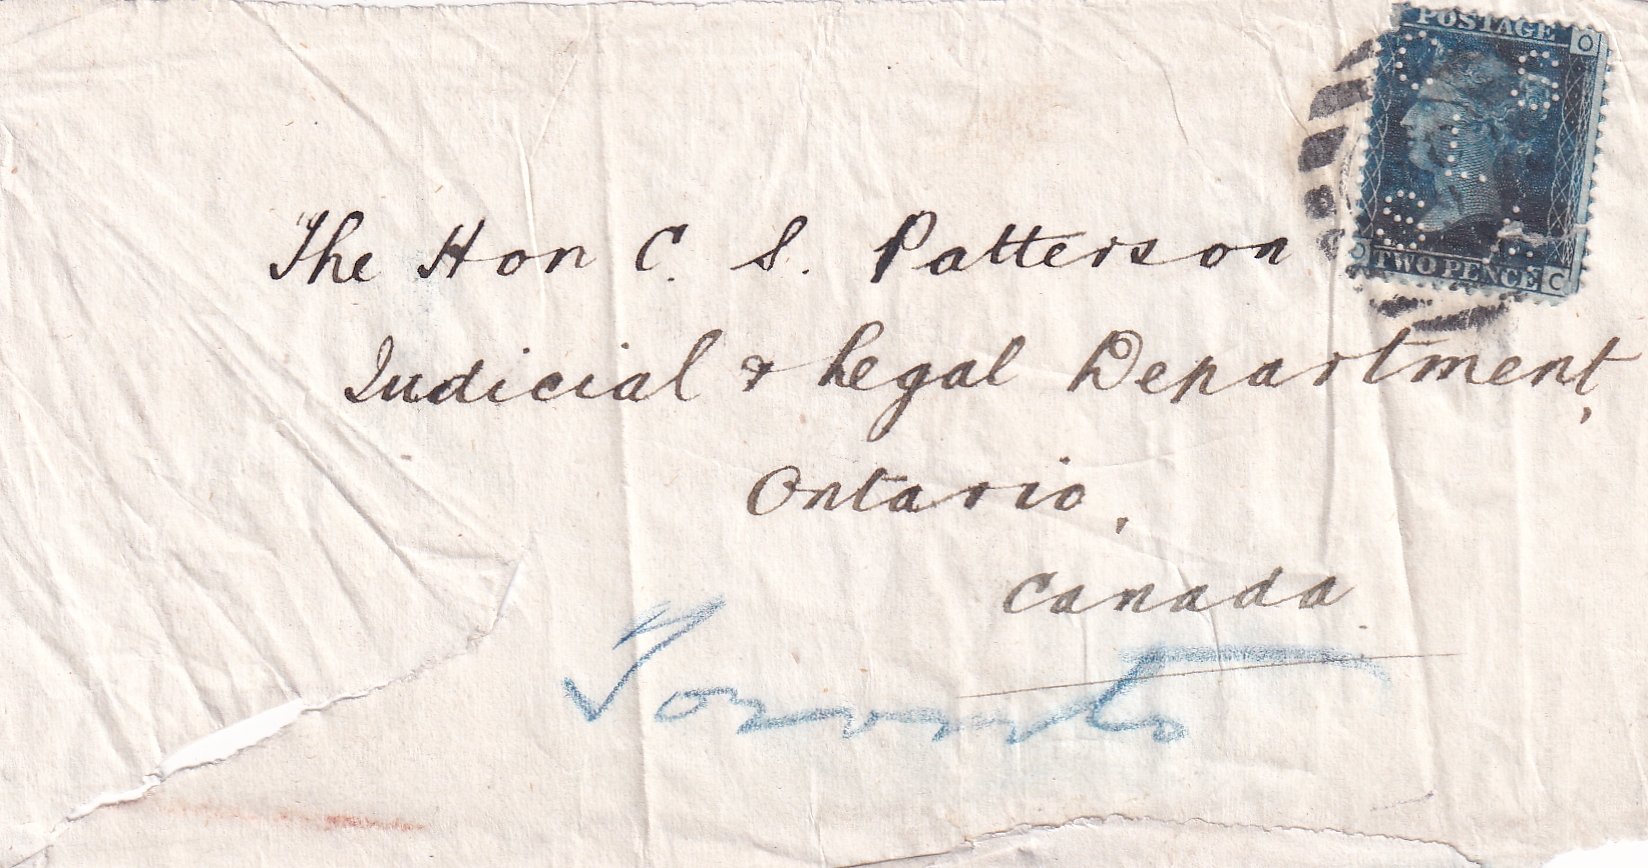 POSTAGE O
TWO PENCE C
The Hon C. S. Patterson
Judicial & Legal Department,
Ontario,
Canada
Toronto